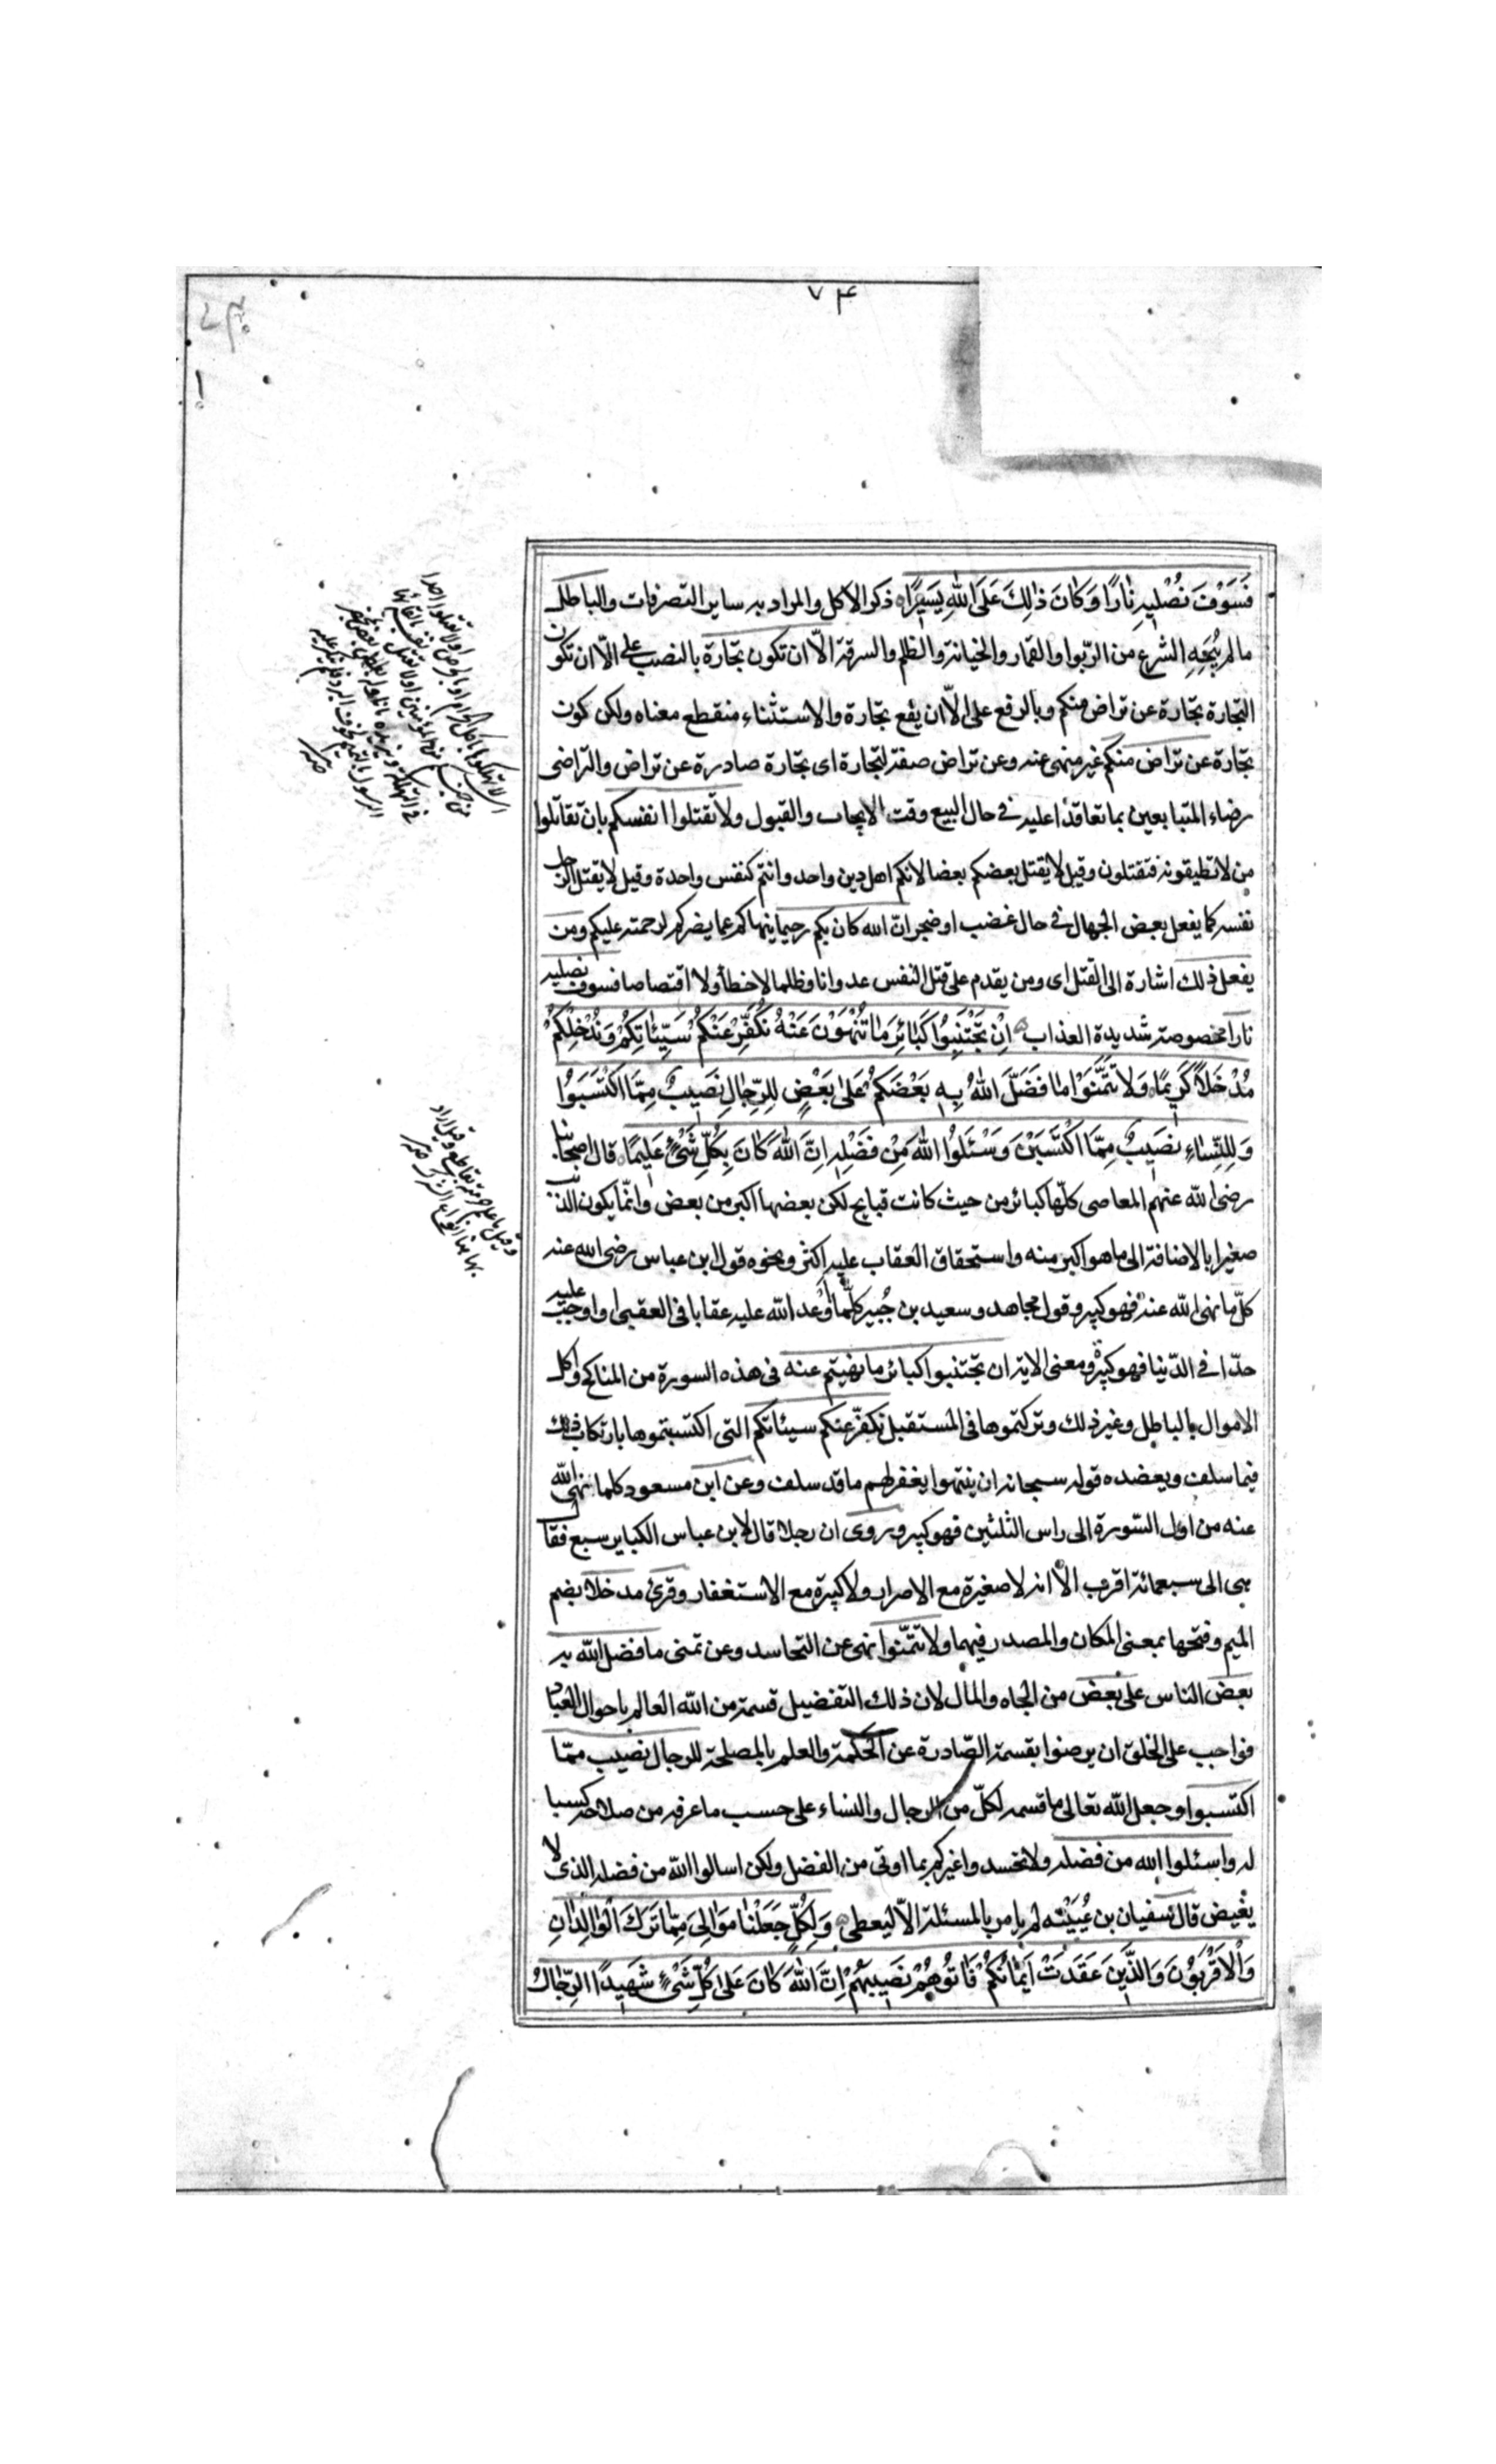 ٧۴
فَسَوْفَ نُصْلِيهِ نٰارًا وَكٰانَ ذٰلِكَ عَلَى اللّٰهِ يَسِيرًا ذكر الاكل والمراد به ساير التصرفات والباطل
ما لم يُبِحِه الشرع من الرّبوا والقمار والخيانة والظلم والسرقة الّا ان تكون تجارة بالنصب على الّا ان تكون
التجارة تجارة عن تراض منكم وبالرفع على الّا ان يقع تجارة والاستثناء منقطع معناه ولكن كون
تجارة عن تراض منكم غير منهى عنه وعن تراض صفة لتجارة اى تجارة صادرة عن تراض والتراضى
رضاء المتبايعين بما تعاقدا عليه فى حال البيع وقت الايجاب والقبول ولا تقتلوا انفسكم بان تقاتلوا
من لا تطيقونه فتقتلون وقيل لا يقتل بعضكم بعضا لانكم اهل دين واحد وانتم كنفس واحدة وقيل لا يقتل الرجل
نفسه كما يفعل بعض الجهال فى حال غضب او ضجر انّ الله كان بكم رحيما ينهاكم عما يضركم لرحمته عليكم ومن
يفعل ذلك اشارة الى القتل اى ومن يقدم على قتل النفس عدوانا وظلما لا خطأ ولا اقتصاصا فسوف نصليه
نارا مخصوصة شديدة العذاب اِنْ تَجْتَنِبُوا كَبٰائِرَ مٰا تُنْهَوْنَ عَنْهُ نُكَفِّرْ عَنْكُمْ سَيِّئٰاتِكُمْ وَنُدْخِلْكُمْ
مُدْخَلًا كَرِيمًا وَلٰا تَتَمَنَّوْا مٰا فَضَّلَ اللّٰهُ بِهِ بَعْضَكُمْ عَلىٰ بَعْضٍ لِلرِّجٰالِ نَصِيبٌ مِمَّا اكْتَسَبُوا
وَلِلنِّسٰاءِ نَصِيبٌ مِمَّا اكْتَسَبْنَ وَسْئَلُوا اللّٰهَ مِنْ فَضْلِهِ اِنَّ اللّٰهَ كٰانَ بِكُلِّ شَىْءٍ عَلِيمًا قال اصحابنا
رضى الله عنهم المعاصى كلّها كبائر من حيث كانت قبايح لكن بعضها اكبر من بعض وانّما يكون الذنب
صغيرا بالاضافة الى ما هو اكبر منه واستحقاق العقاب عليه اكثر ونحوه قول ابن عباس رضى الله عنه
كلّ ما نهى الله عنه فهو كبيرة وقول مجاهد وسعيد بن جُبير كلّما اَوْعد الله عليه عقابا فى العقبى او اوجب عليه
حدّا فى الدّنيا فهو كبيرة ومعنى الاية ان تجتنبوا كبائر ما نهيتم عنه فى هذه السورة من المناكح واكل
الاموال بالباطل وغير ذلك وتركتموها فى المستقبل نكفّر عنكم سيئاتكم التى اكتسبتموها بارتكاب ذلك
فيما سلف ويعضده قوله سبحانه ان ينتهوا يغفر لهم ما قد سلف وعن ابن مسعود كلما نهى الله
عنه من اول السّورة الى راس الثلثين فهو كبيرة وروى ان رجلا قال لابن عباس الكباير سبع فقال
هى الى سبعمائة اقرب الّا انه لا صغيرة مع الاصرار ولا كبيرة مع الاستغفار وقرئ مدخلا بضم
الميم وفتحها بمعنى المكان والمصدر فيهما ولا تتمنّوا نهى عن التحاسد وعن تمنى ما فضل الله به
بعض الناس على بعض من الجاه والمال لان ذلك التفضيل قسمة من الله العالم باحوال العباد
فواجب على الخلق ان يرضوا بقسمة الصّادرة عن الحكمة والعلم بالمصلحة للرجال نصيب ممّا
اكتسبوا وجعل الله تعالى ما قسمه لكلّ من الرجال والنساء على حسب ما عرفه من صلاحه كسبا
له واسئلوا الله من فضله ولا تحسدوا غيركم بما اوتى من الفضل ولكن اسالوا الله من فضله الذى لا
يغيض قال سفيان بن عُيَيْنَه لم يامر بالمسئلة الّا ليعطى وَلِكُلٍّ جَعَلْنٰا مَوٰالِىَ مِمّٰا تَرَكَ الْوٰالِدٰانِ
وَالْاَقْرَبُونَ وَالَّذِينَ عَقَدَتْ اَيْمٰانُكُمْ فَاٰتُوهُمْ نَصِيبَهُمْ اِنَّ اللّٰهَ كٰانَ عَلىٰ كُلِّ شَىْءٍ شَهِيدًا الرِّجٰالُ